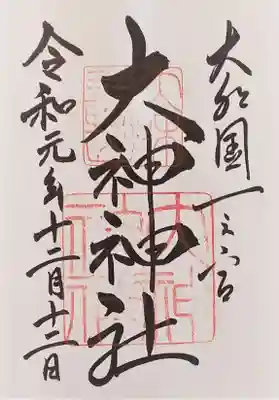 大和國一之宮
大神神社
令和元年十二月十二日